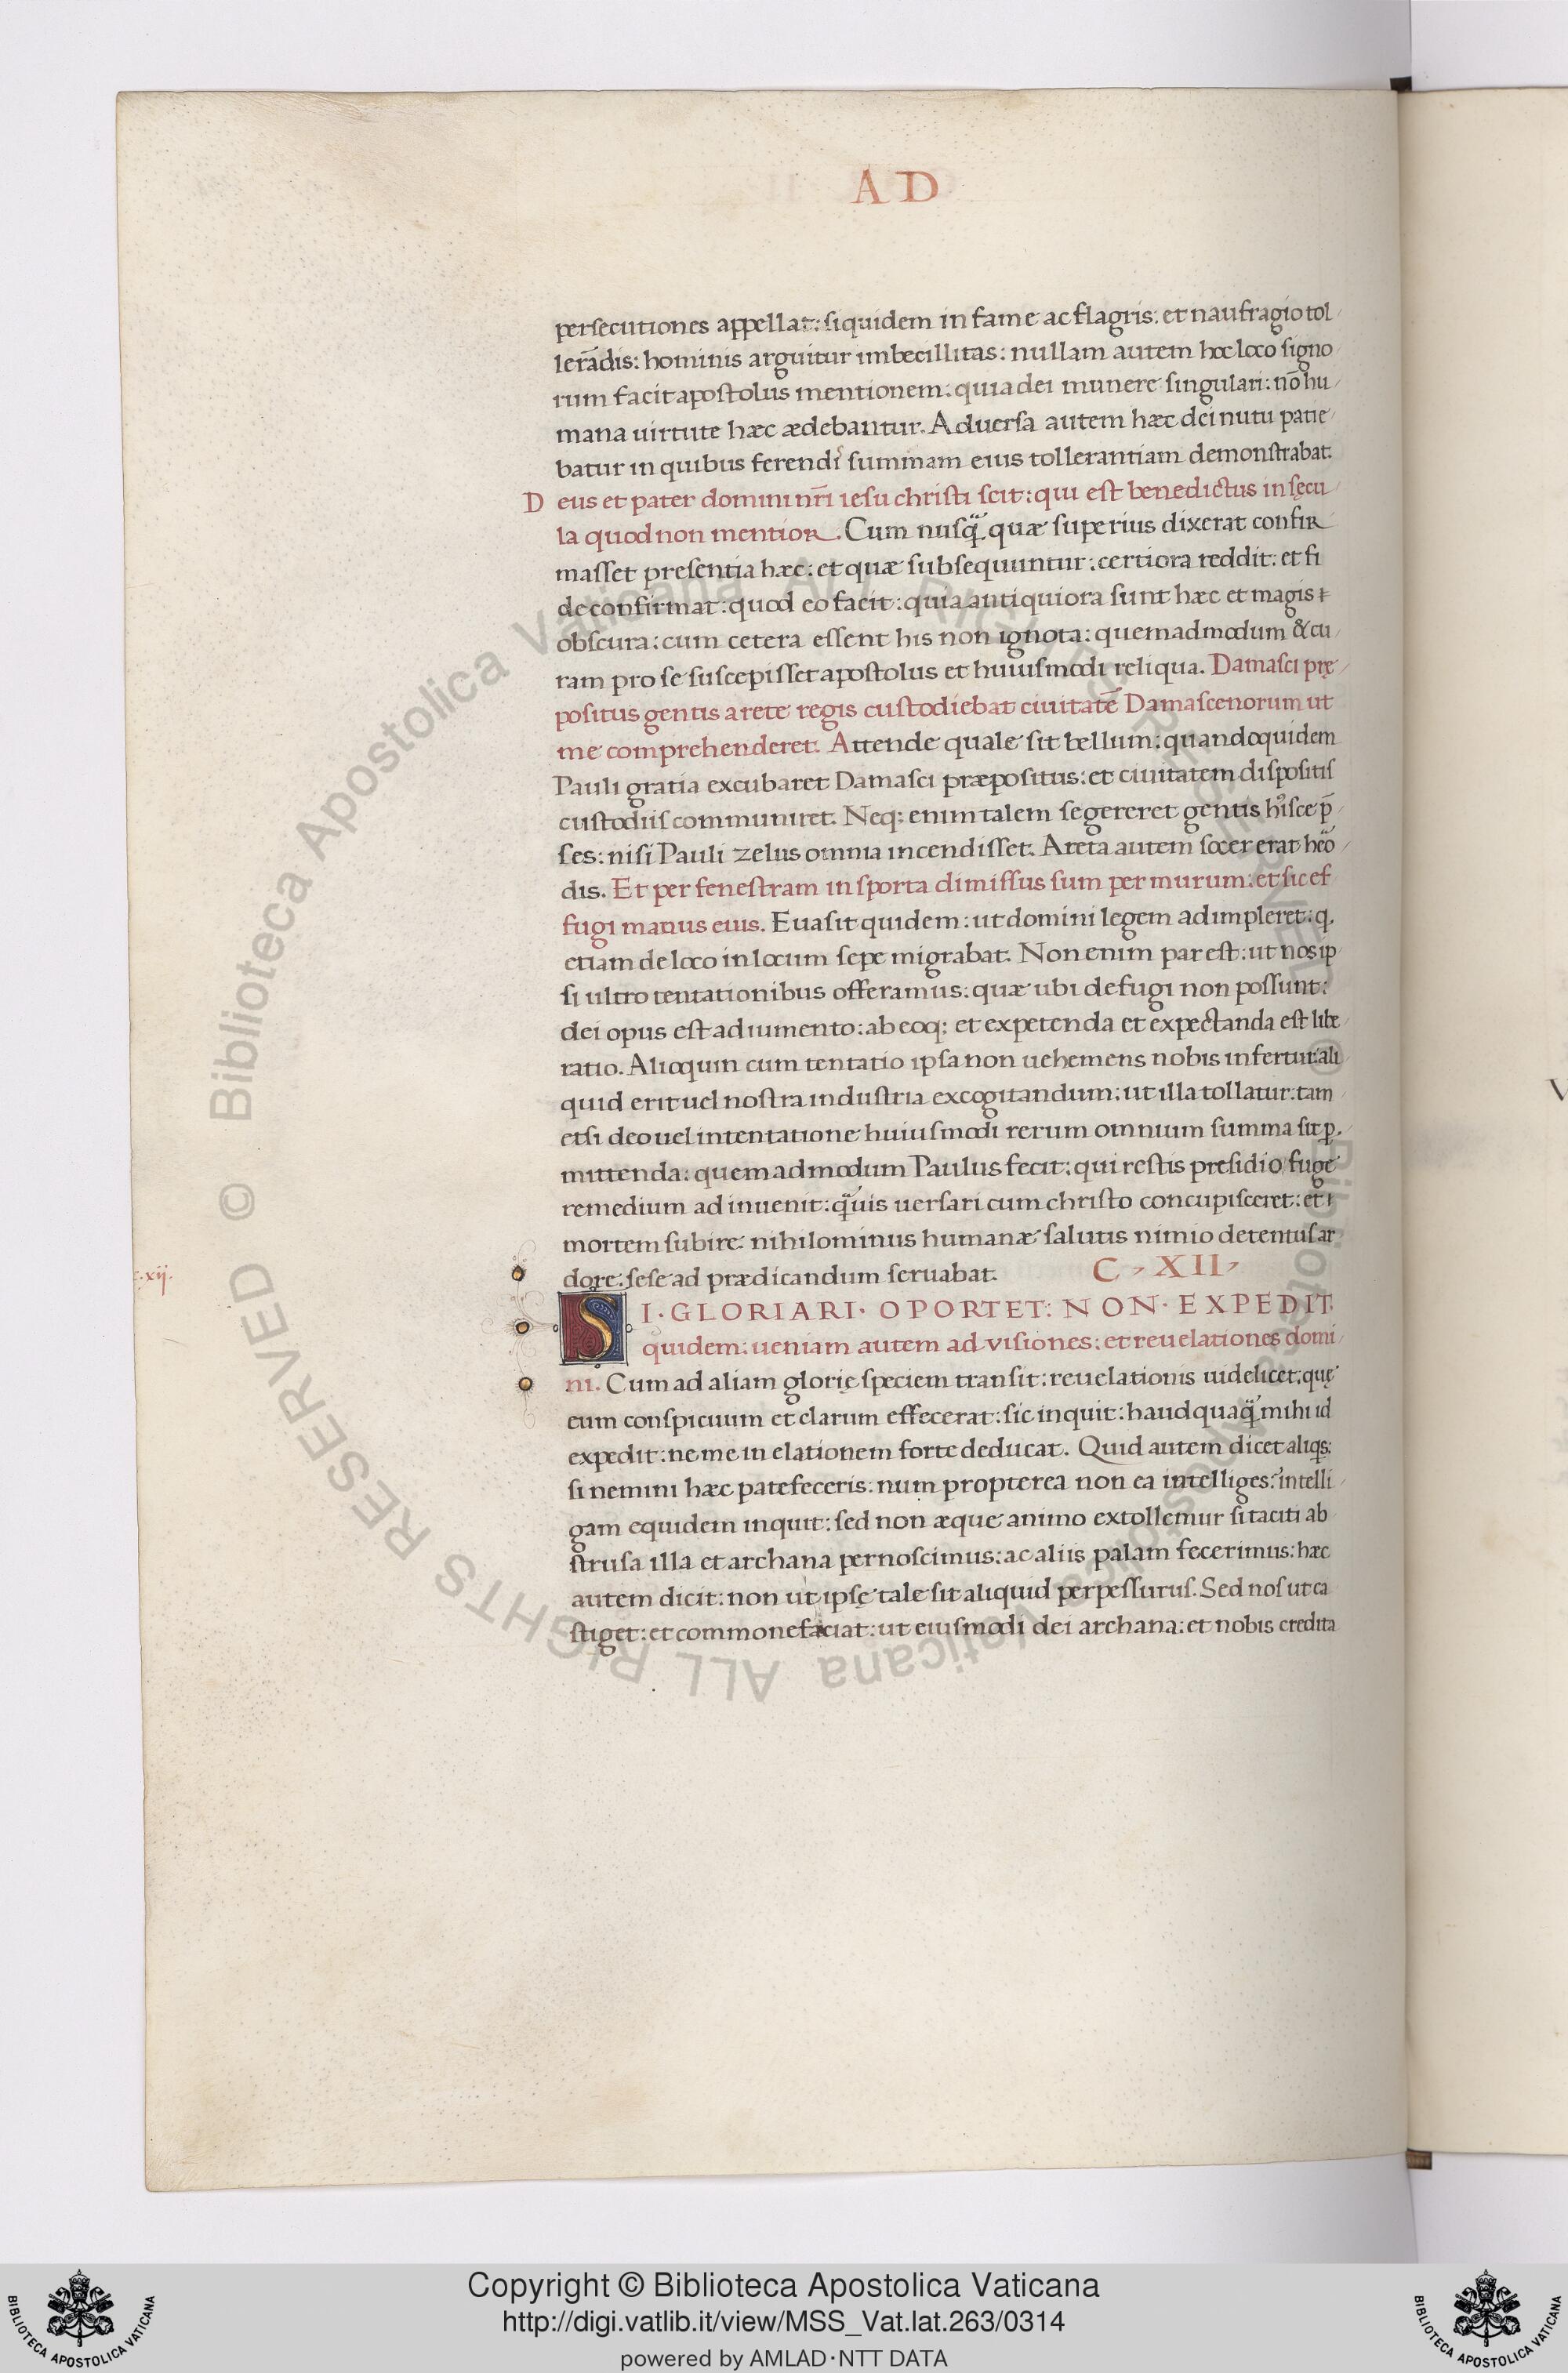 A D
persecutiones appellat: siquidem in fame ac flagris: et naufragio tol
lerãdis: hominis arguitur imbecillitas: nullam autem hoc loco signo
rum facit apostolus mentionem: quia dei munere singulari: nõ hu
mana uirtute hæc ædebantur. Aduersa autem hæc dei nutu patie
batur in quibus ferendiˢ summam eius tollerantiam demonstrabat.
D eus et pater domini nr̃i iesu christi scit: qui est benedictus in sęcu
la quod non mentior. Cum nusq̃ quæ superius dixerat confir
masset presentia hæc: et quæ subsequuntur: certiora reddit: et fi
de confirmat: quod eo facit: quia antiquiora sunt hæc et magis
obscura: cum cetera essent his non ignota: quemadmodum & cu
ram pro se suscepisset apostolus et huiusmodi reliqua. Damasci pre
positus gentis arete regis custodiebat ciuitatẽ Damascenorum ut
me comprehenderet. Attende quale sit bellum: quandoquidem
Pauli gratia excubaret Damasci præpositus: et ciuitatem dispositis
custodiis communiret. Neq; enim talem se gereret gentis huisce p̃
ses: nisi Pauli zelus omnia incendisset. Areta autem socer erat hero
dis. Et per fenestram in sporta dimissus sum per murum: et sic ef
fugi manus eius. Euasit quidem: ut domini legem adimpleret: q.
etiam de loco in locum sepe migrabat. Non enim par est: ut nos ip
si ultro tentationibus offeramus: quæ ubi defugi non possunt:
dei opus est adiumento: ab eoq; et expetenda et expectanda est libe
ratio. Alioquin cum tentatio ipsa non uehemens nobis infertur: ali
quid erit uel nostra industria excogitandum: ut illa tollatur: tam
etsi deo uel in tentatione huiusmodi rerum omnium summa sit p.
mittenda: quemadmodum Paulus fecit: qui restis presidio fuge
remedium adinuenit: q̃uis uersari cum christo concupisceret: et
mortem subire: nihilominus humanæ salutis nimio detentus ar
dore: sese ad prædicandum seruabat. C XII
c. xij.
SI · GLORIARI · OPORTET: NON · EXPEDIT
quidem: ueniam autem ad visiones: et reuelationes domi
ni. Cum ad aliam glorię speciem transit: reuelationis uidelicet: quę
eum conspicuum et clarum effecerat: sic inquit: haud quaq̃ mihi id
expedit: ne me in elationem forte deducat. Quid autem dicet aliqs:
si nemini hæc patefeceris: num propterea non ea intelliges: intelli
gam equidem inquit: sed non æque animo extollemur si taciti ab
strusa illa et archana pernoscimus: ac aliis palam fecerimus: hæc
autem dicit: non ut ipse tale sit aliquid perpessurus. Sed nos ut ca
stiget: et commonefaciat: ut eiusmodi dei archana: et nobis credita
© Biblioteca Apostolica Vaticana ALL RIGHTS RESERVED © Biblioteca Apostolica Vaticana ALL RIGHTS RESERVED
Copyright © Biblioteca Apostolica Vaticana
http://digi.vatlib.it/view/MSS_Vat.lat.263/0314
powered by AMLAD·NTT DATA
BIBLIOTECA APOSTOLICA VATICANA
BIBLIOTECA APOSTOLICA VATICANA